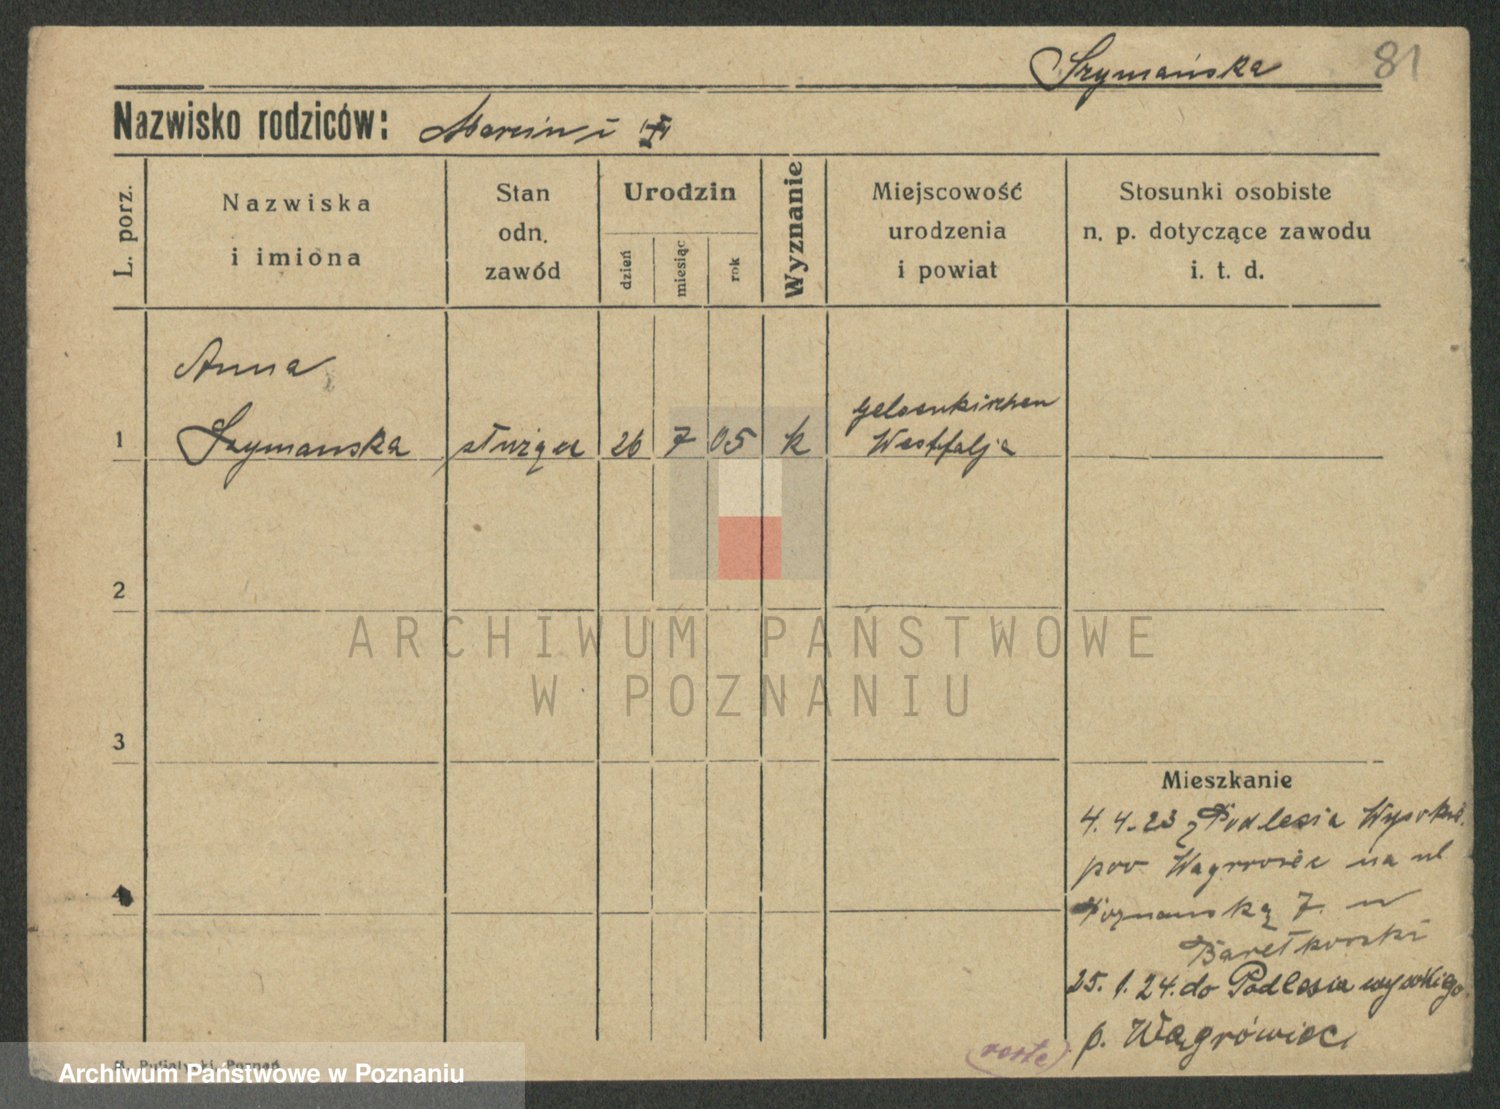 Szymańska 81
Nazwisko rodziców: Marcin i
L. porz.
Nazwiska
i imiona
Stan
odn.
zawód
Urodzin
dzień
miesiąc
rok
Wyznanie
Miejscowość
urodzenia
i powiat
Stosunki osobiste
n. p. dotyczące zawodu
i. t. d.
Anna
1 Szymanska służąca 26 7 05 k
Gelsenkirchen
Westfalja
2
ARCHIWUM PAŃSTWOWE
W POZNANIU
3
Mieszkanie
4. 4. 23 z Podlesia Wysokie.
pow Wągrowiec na ul
4 Poznańską 7. w
25. 1. 24. do Podlesia wysokiego
p. Wągrówiec
Poznań
Archiwum Państwowe w Poznaniu